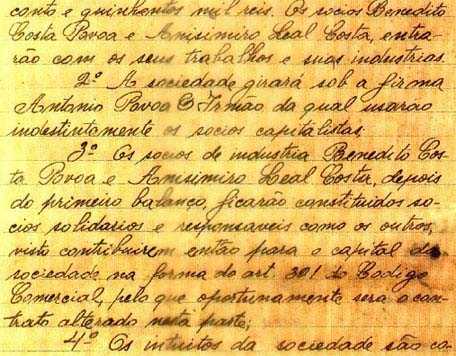 conto e quinhentos mil reis. Os socios Benedito
Costa Povoa e Anisimiro Leal Costa, entra-
rão com os seus trabalhos e suas industrias.
2º A sociedade girará sob a firma
Antonio Povoa & Irmão da qual usarão
indestintamente os socios capitalistas.
3º Os socios de industria Benedito Cos-
ta Povoa e Anisimiro Leal Costa, depois
do primeiro balanço, ficarão constituidos so-
cios solidarios e responsaveis como os outros,
visto contribuirem então para o capital da
sociedade na forma do art. 301 do Codigo
Comercial, pelo que oportunamente será o con-
trato alterado nesta parte;
4º Os intuitos da sociedade são co-